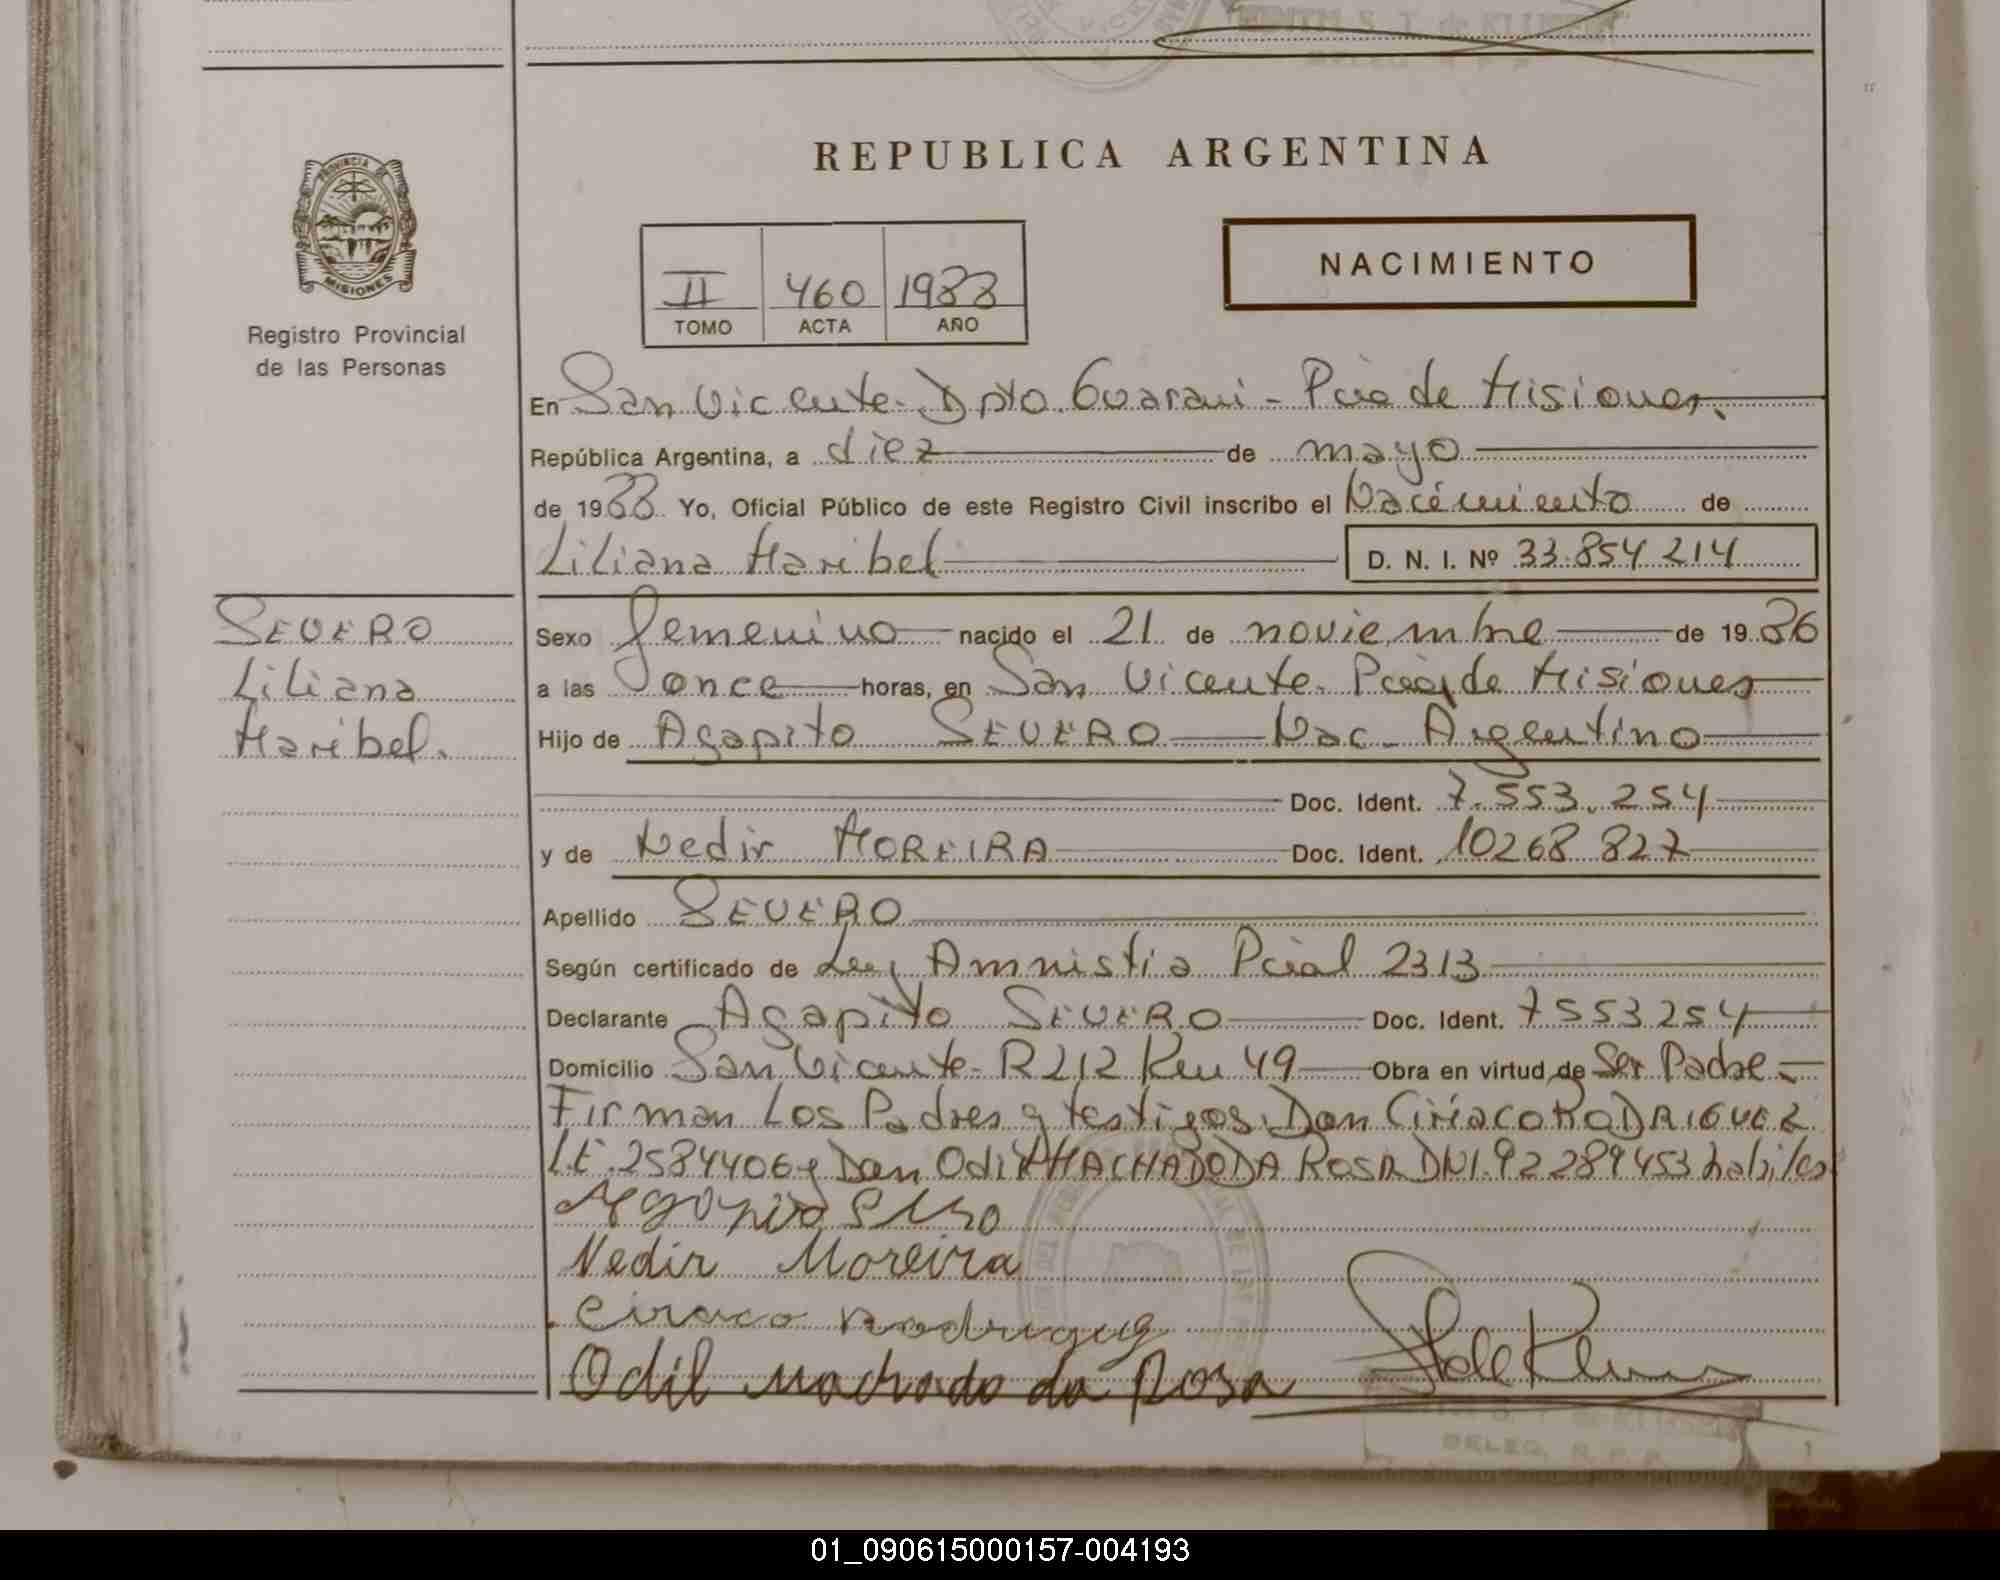 REPUBLICA ARGENTINA
PROVINCIA DE
MISIONES
Registro Provincial
de las Personas
II 460 1988
TOMO ACTA AÑO
NACIMIENTO
En San Vicente. Dpto. Guarani - Pcia de Misiones.
República Argentina, a diez de mayo
de 1988 Yo, Oficial Público de este Registro Civil inscribo el Nacimiento de
Liliana Maribel D. N. I. Nº 33.854.214
SEVERO
Liliana
Maribel.
Sexo femenino nacido el 21 de noviembre de 1986
a las once horas, en San Vicente. Pcia de Misiones
Hijo de Agapito SEVERO Nac. Argentino
Doc. Ident. 7.553.254
y de Nedir MOREIRA Doc. Ident. 10268 827
Apellido SEVERO
Según certificado de Ley Amnistia Pcial 2313
Declarante Agapito SEVERO Doc. Ident. 7553254
Domicilio San Vicente - R212 Km 49 Obra en virtud de Ser Padre -
Firman Los Padres y testigos Don Ciriaco RODRIGUEZ
L.E. 2584406 y Don Odil MACHADO DA ROSA DNI. 92289453 habiles
Nedir Moreira
Ciraco Rodriguez
Odil Machado da Rosa
DELEG. R. P. P.
01_090615000157-004193